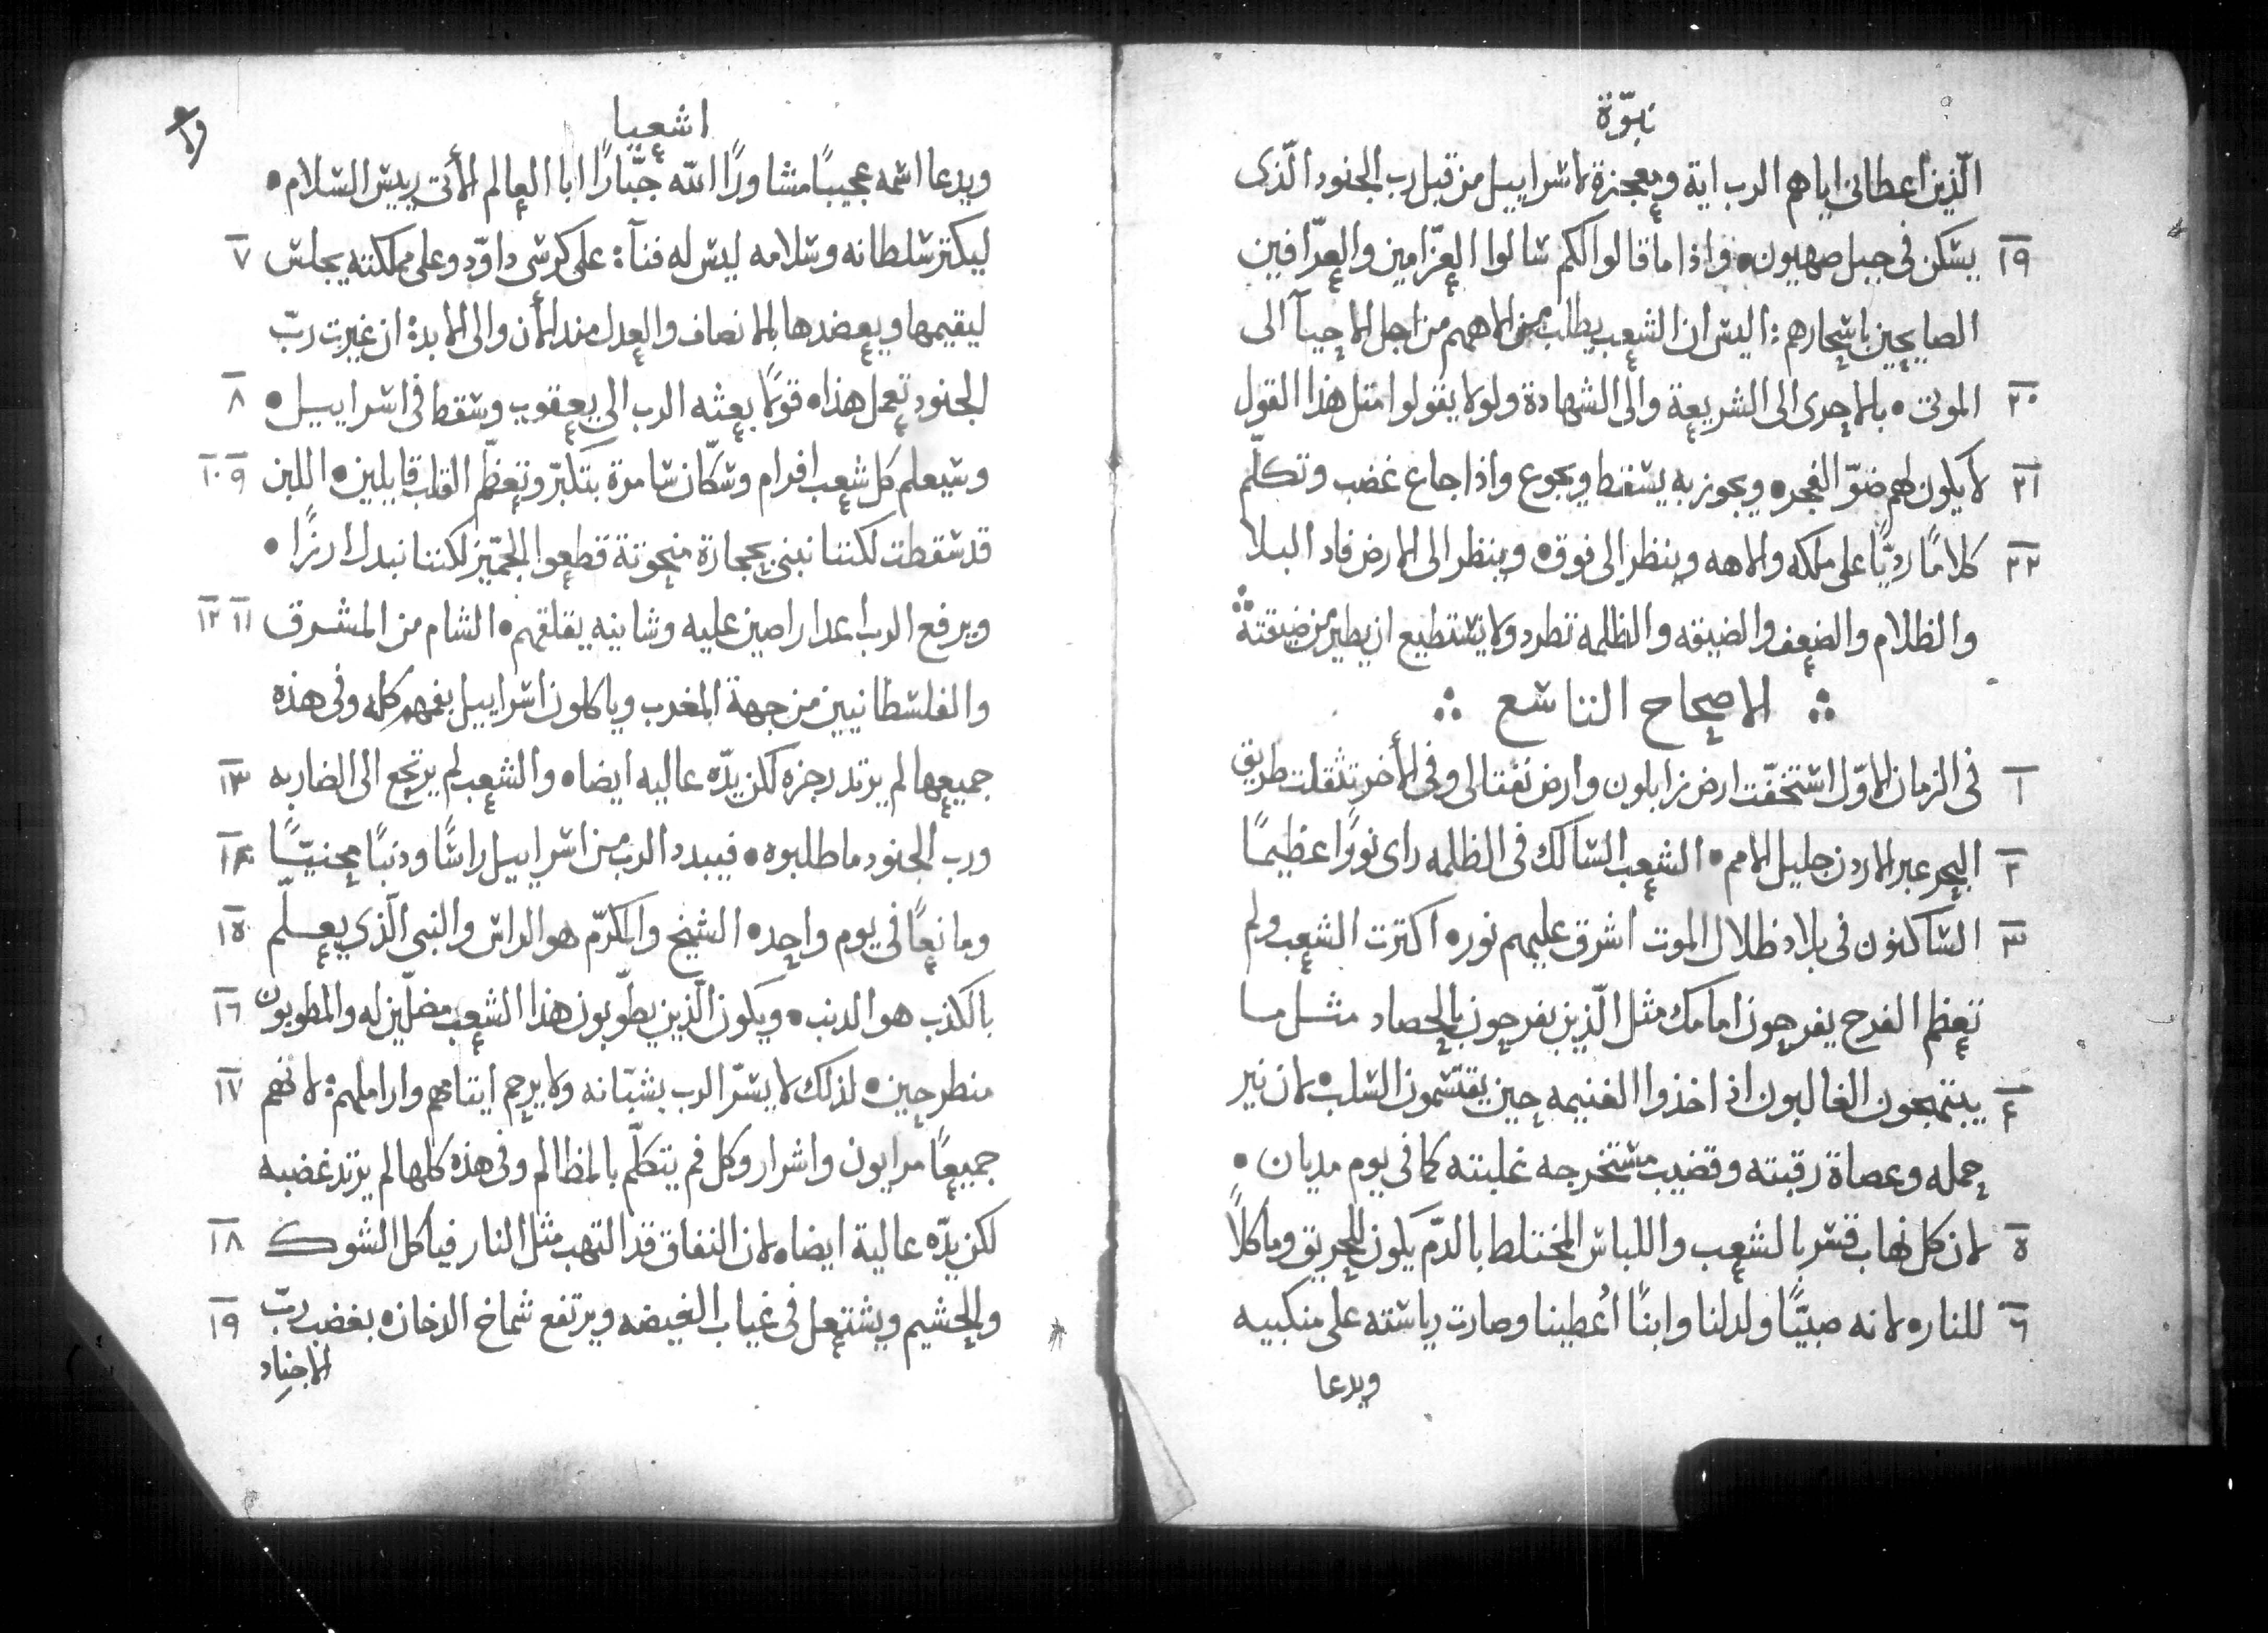 نبوّة
الّذين اعطاني اياهم الرب اية ومعجزة لاسراييل من قبل رب الجنود الّذى
١٩ يسكن فى جبل صهيون • واذا ما قالوا لكم سالوا العزّامين والعرّافين
الصايحين باسحارهم : اليس ان الشعب يطلب من الاههم من اجل الاحيآ الى
٢٠ الموتى • بالاحرى الى الشريعة والى الشهادة ولو لا يقولوا متل هذا القول
٢١ لا يكون لهم ضوّ الفجر • ويجوز به يسقط ويجوع واذا جاع غضب وتكلّم
٢٢ كلامًا رديًّا على ملكه والاهه وينظر الى فوق • وينظر الى الارض فاد البلا
والظلام والضعف والضيقه والظلمه تطرد ولا يستطيع ان يطير من ضيقته
الاصحاح التاسع
١ فى الزمان الاوّل استخفّت ارض زابلون وارض نفتالى وفى الأخر تثقلت طريق
٢ البحر عبر الاردن جليل الامم • الشعب السالك فى الظلمه راى نورًا عظيمًا
٣ الساكنون فى بلاد ظلال الموت اشرق عليهم نور • اكترت الشعب ولم
تعظم الفرح يفرحون امامك مثل الّذين يفرحون بالحصاد مثل ما
٤ يبتهجون الغالبون اذ اخذوا الغنيمه حين يقتسمون السلب • لان نير
حمله وعصاة رقبته وقضيب مستخرجه غلبته كما فى يوم مديان •
٥ لان كل نهاب قسر بالشعب واللباس المختلط بالدّم يكون للحريق وماكلاً
٦ للنار • لانه صبيّا ولد لنا وابنًا أعطينا وصارت رياسته على منكبيه
ويدعا
اشعيا
ويدعا اسمه عجيبًا مشاورًا الله جبّارًا ابا العالم الأتى رييس السلام •
٧ ليكتر سلطانه وسلامه ليس له فنآ : على كرسى داوّد وعلى مملكته يجلس
ليقيمها ويعضدها بالانصاف والعدل منذ الأن والى الابد : ان غيرت ربّ
٨ الجنود تعمل هذا • قولًا بعثه الرب الى يعقوب وسقط فى اسراييل •
٩ ١٠ وسيعلم كل شعب افرام وسكّان سامرة بتكبّر وتعظّم القلب قايلين • اللبن
قد سقطت لكننا نبنى بحجارة منحوتة قطعوا الجمّيز لكننا نبدل ارزًا •
١١ ١٢ ويرفع الرب اعدا راصين عليه وشانيه يقلقهم • الشام من المشرق
والفلسطانيين من جهة المغرب وياكلون اسراييل بفمهم كله وفى هذه
١٣ جميعها لم يرتد رجزه لكن يدّه عاليه ايضا • والشعب لم يرتجع الى الضاربه
١٤ ورب الجنود ما طلبوه • فيبدد الرب من اسراييل راسًا ودنبًا محنيّا
١٥ ومانعًا فى يوم واحد • الشيخ والمكرّم هو الراس والنبى الّذى يعلّم
١٦ بالكذب هو الدنب • ويكون الّذين يطوّبون هذا الشعب مضلّين له والمطوبون
١٧ منطرحين • لذلك لا يسرّ الرب بشبّانه ولا يرحم ايتامهم واراملهم : لانهم
جميعًا مرايون واشرار وكل فم يتكلّم بالمظالم وفى هذه كلها لم يرتد غضبه
١٨ لكن يدّه عالية ايضا • لان النفاق قد التهب مثل النار فياكل الشوك
١٩ والحشيم ويشتعل فى غياب الغيضه ويرتفع شماخ الدخان • بغضب ربّ
الاجناد